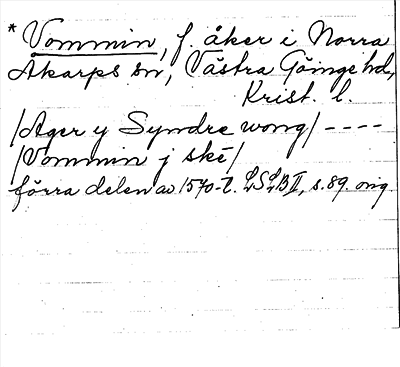 * Vommin, f. åker i Norra
Åkarps sn, Västra Göinge hd,
Krist. l.
/Ager y Syndre wong/ ----
/Vommin j ske/
förra delen av 1540-t. LSLB II, s. 89. orig